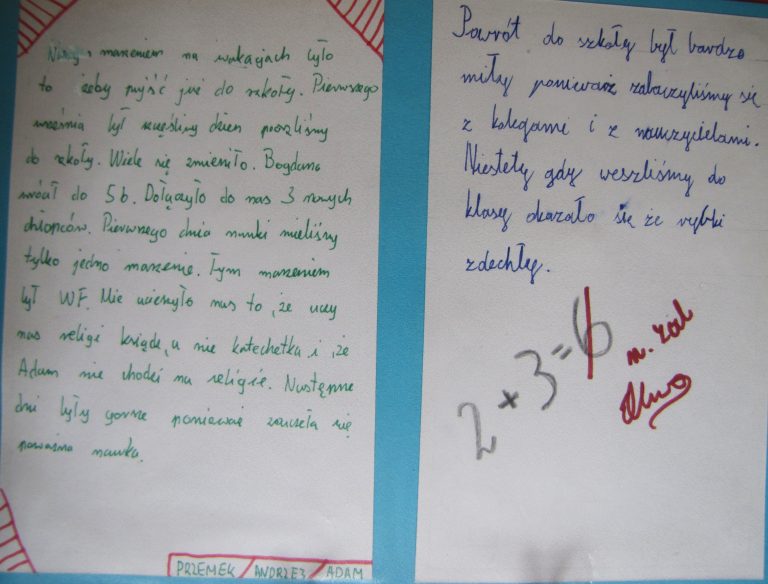 Naszym marzeniem na wakacjach było
to żeby pujść już do szkoły. Pierwszego
września był szczęśliwy dzień poszliśmy
do szkoły. Wiele się zmieniło. Bogdano
wrócił do 5b. Dołączyło do nas 3 nowych
chłopców. Pierwszego dnia nauki mieliśmy
tylko jedno marzenie. Tym marzeniem
był WF. Nie ucieszyło nas to, że uczy
nas religi ksiądz, a nie katechetka i, że
Adam nie chodzi na religię. Następne
dni były gorsze ponieważ zaczeła się
poważna nauka.
PRZEMEK / ANDRZEJ / ADAM
Powrót do szkoły był bardzo
miły ponieważ zobaczyliśmy się
z kolegami i z nauczycielami.
Niestety gdy weszliśmy do
klasy okazało się że rybki
zdechły.
2 × 3 = 6